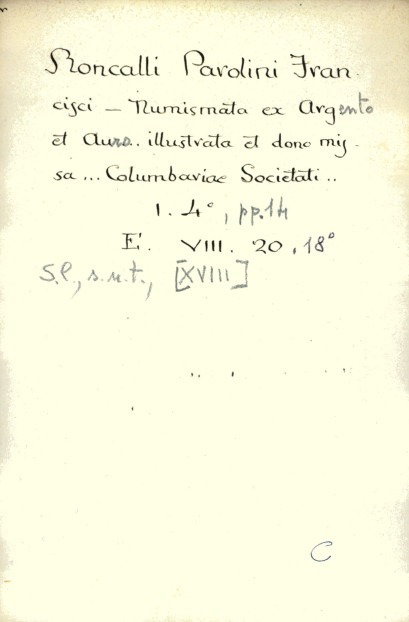 Roncalli Parolini Fran-
cisci — Numismata ex Argento
et Auro.. illustrata et dono mis-
sa ... Columbariae Societati ..
1. 4°, pp. 14
E'. VIII. 20, 18°
S.l., s.n.t., [XVIII]
C